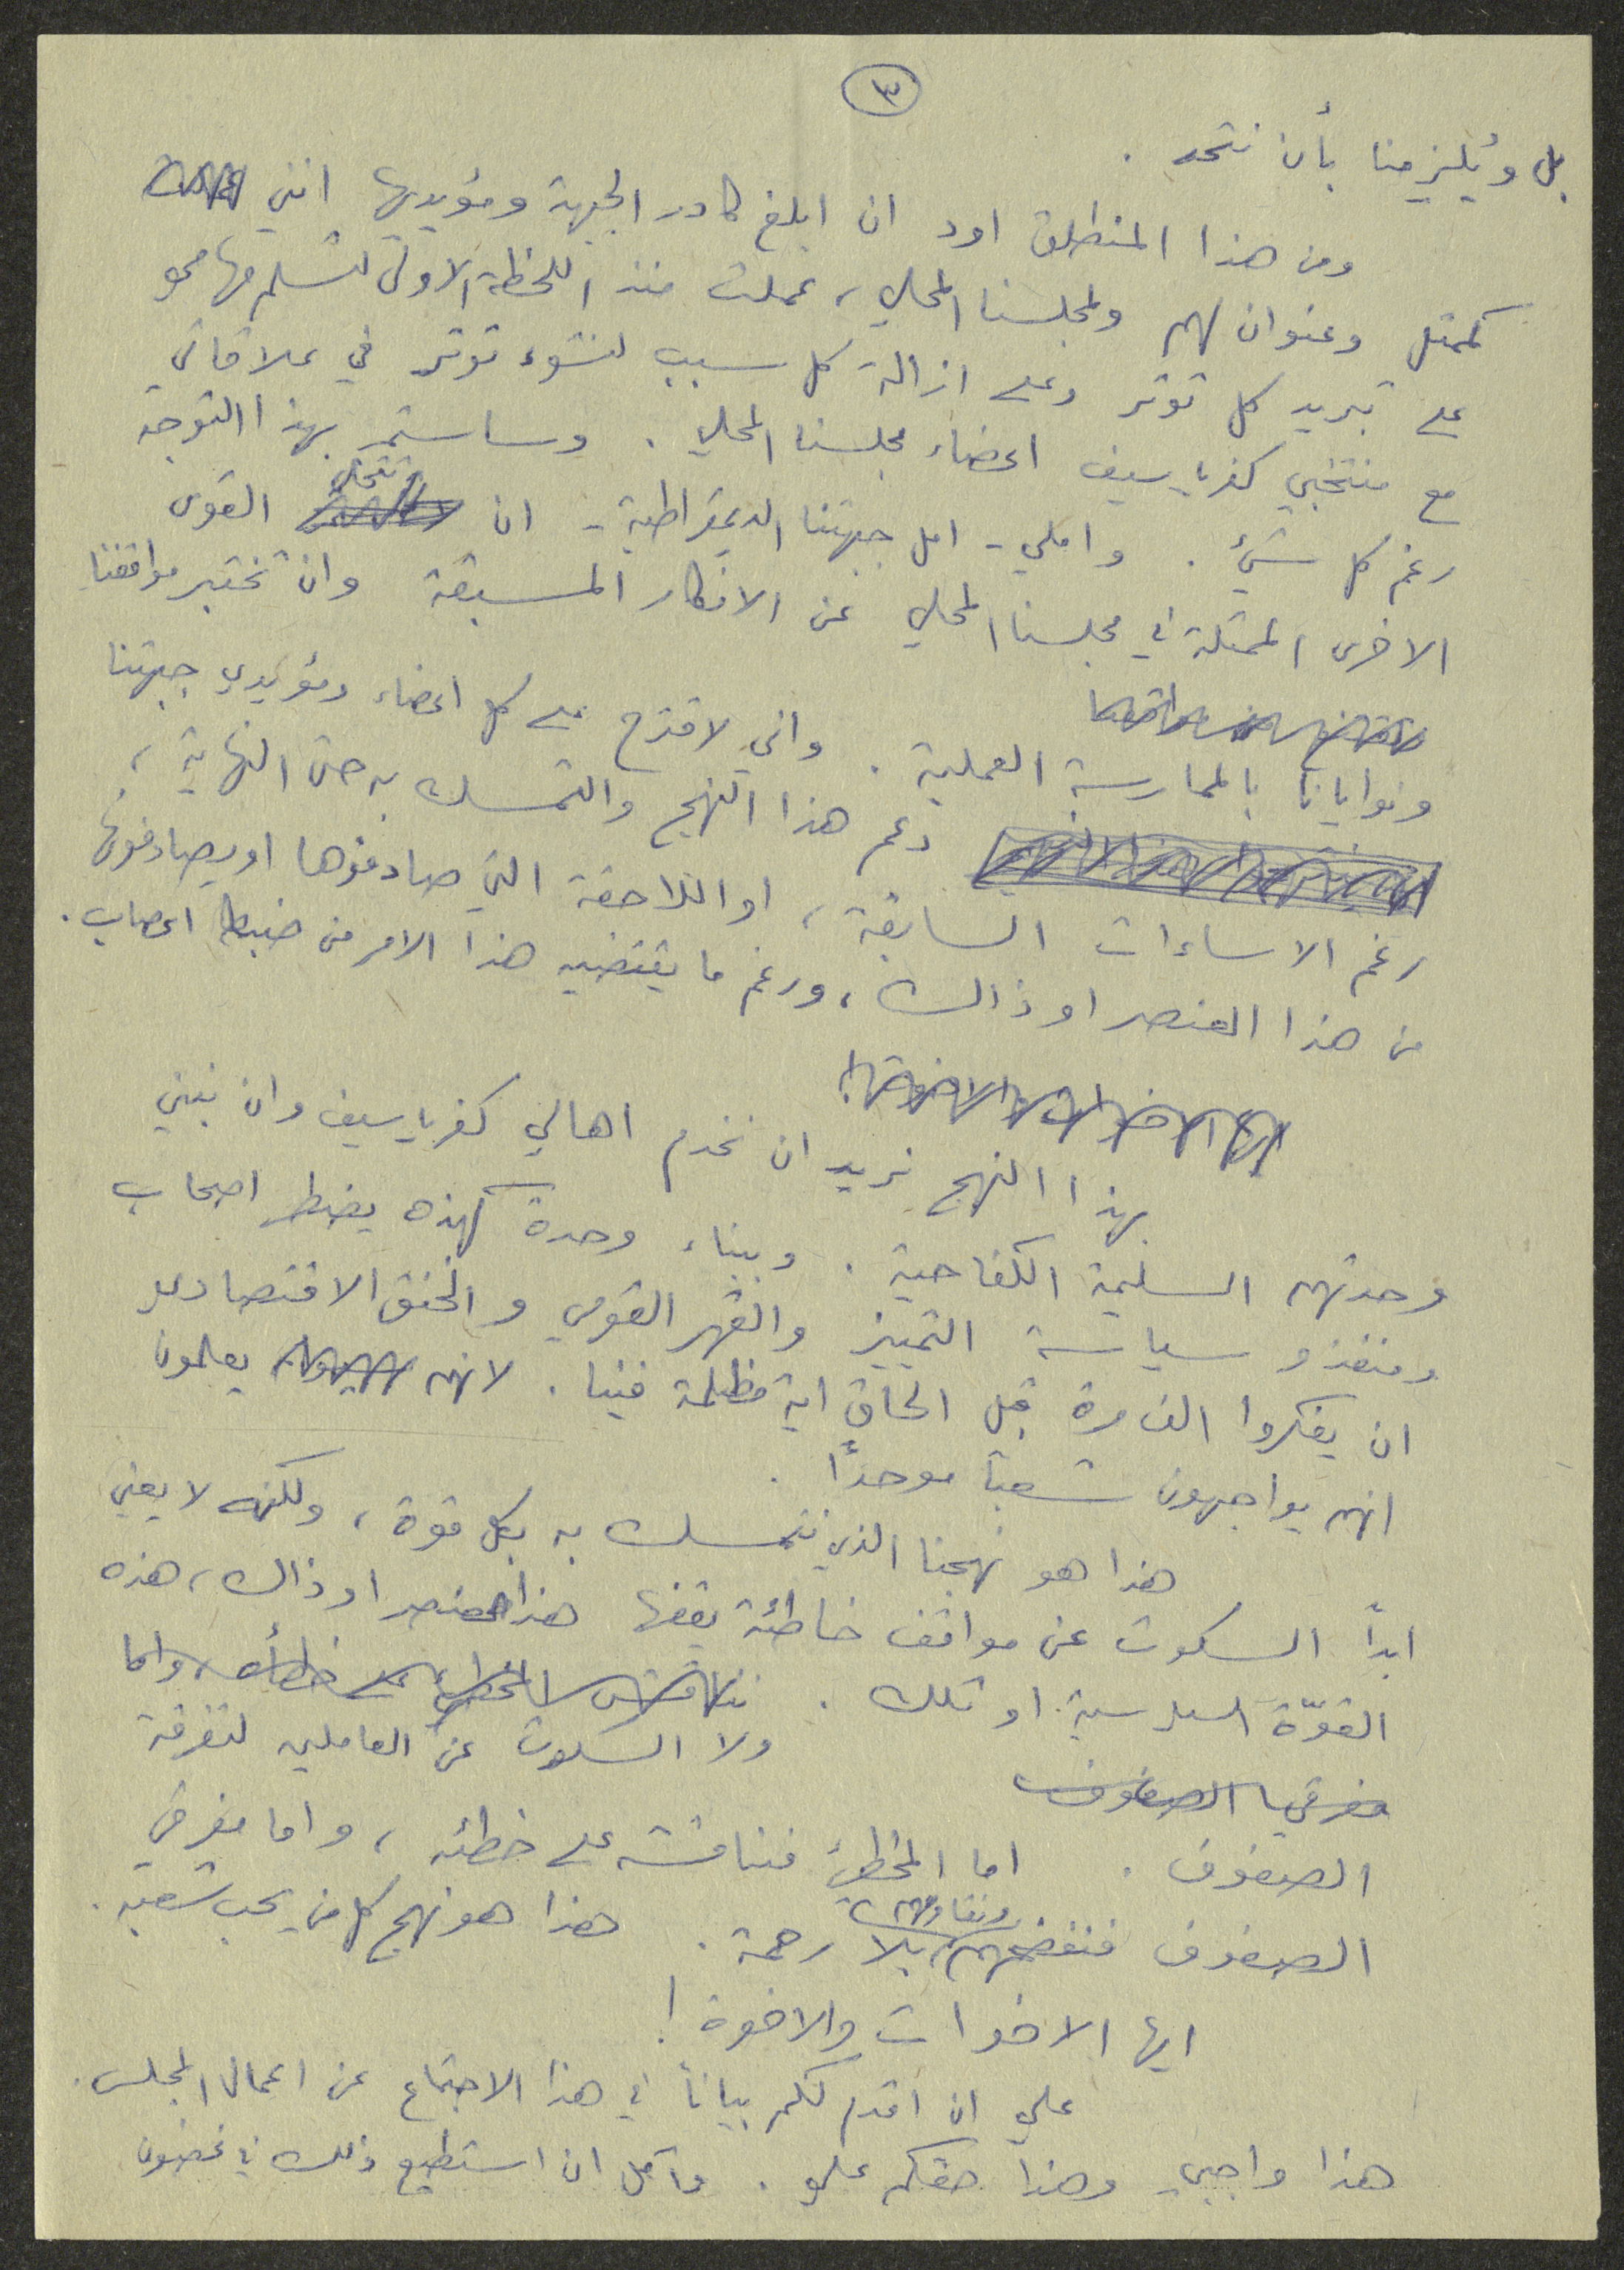 ٣
بل ويُلزمنا بأن نتحد .
ومن هذا المنطلق اود ان ابلغ كادر الجبهة ومؤيديها انني
كممثل وعنوان لهم ولمجلسنا المحلي، عملت منذ اللحظة الاولى لتسلم مهامي
على تبريد كل توتر وعلى ازالة كل سبب لنشوء توتر في علاقاتي
مع منتخبي كفرياسيف اعضاء مجلسنا المحلي . وساستمر بهذا التوجه
رغم كل شيئ . واملي - امل جبهتنا الديمقراطية - ان تتخلى القوى
الاخرى الممثلة في مجلسنا المحلي عن الافكار المسبقة وان تختبر مواقفنا
ونوايانا بالممارسة العملية . واني لاقترح على كل اعضاء ومؤيدي جبهتنا
دعم هذا النهج والتمسك به حتى النهاية ،
رغم الاساءات السابقة ، او اللاحقة التي صادفوها او يصادفونها
من هذا العنصر او ذاك ، ورغم ما يقتضيه هذا الامر من ضبط اعصاب .
ايها الاخوات والاخوة !
بهذا النهج نريد ان نخدم اهالي كفرياسيف وان نبني
وحدتهم السليمة الكفاحية . وبناء وحدة كهذه يضطر اصحاب
ومنفذو سياسة التمييز والقهر القومي والخنق الاقتصادي
ان يفكروا الف مرة قبل الحاق اية مظلمة فينا . لانهم يعلمون
انهم يواجهون شعبًا موحدًا .
هذا هو نهجنا الذي نتمسك به بكل قوة ، ولكنه لا يعني
ابدًا السكوت عن مواقف خاطئة يقفها هذا العنصر او ذاك ، هذه
القوّة السياسية او تلك . نناقش المخطئ على خطأه واما
ولا السكوت عن العاملين لتفرقة
مفرقي الصفوف
الصفوف . اما المخطئ فنناقشه على خطئه ، واما مفرقي
الصفوف فنفضحهم ونقاومهم بلا رحمة . هذا هو نهج كل من يحب شعبه .
ايها الاخوات والاخوة !
علي ان اقدم لكم بيانًا في هذا الاجتماع عن اعمال المجلس .
هذا واجبي وهذا حقكم علي . وآمل ان استطيع ذلك في غضون